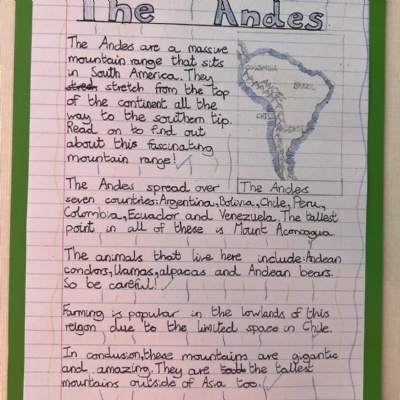 The Andes
The Andes are a massive
mountain range that sits
in South America. They
stretch from the top
of the continent all the
way to the southern tip.
Read on to find out
about this fascinating
mountain range!
COLOMBIA
BRAZIL
CHILE
The Andes
The Andes spread over
seven countries: Argentina, Bolivia, Chile, Peru,
Colombia, Ecuador and Venezuela. The tallest
point in all of these is Mount Aconcagua.
The animals that live here include: Andean
condors, llamas, alpacas and Andean bears.
So be careful!
Farming is popular in the lowlands of this
reigon due to the limited space in Chile.
In conclusion, these mountains are gigantic
and amazing. They are the tallest
mountains outside of Asia too.